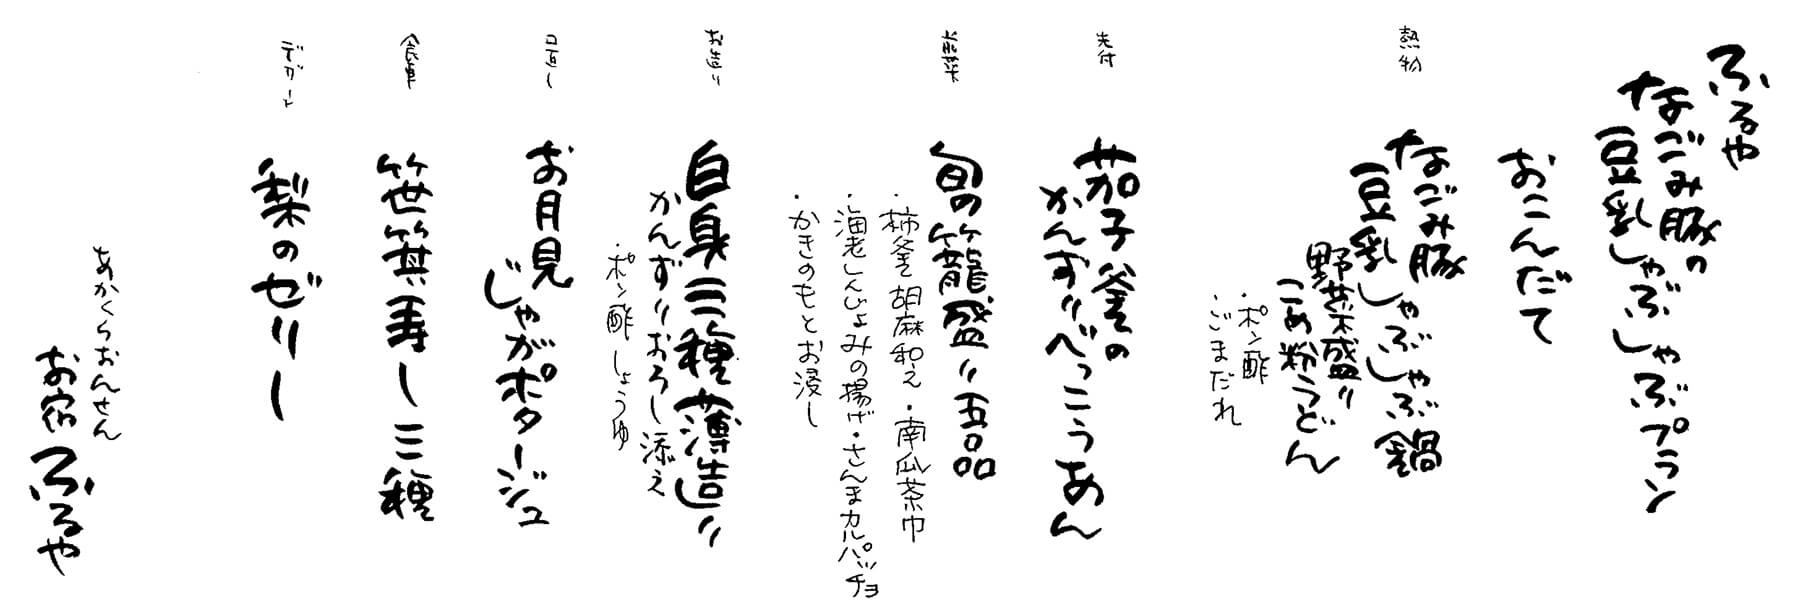 ふるや
なごみ豚の
豆乳しゃぶしゃぶプラン
おこんだて
熱物
なごみ豚
豆乳しゃぶしゃぶ鍋
野菜盛り
こめ粉うどん
・ポン酢
・ごまだれ
先付
茄子釜の
かんずりべっこうあん
前菜
旬の籠盛り五品
・柿釜胡麻和え・南瓜茶巾
・海老しんじょみの揚げ・さんまカルパッチョ
・かきのもとお浸し
お造り
白身三種薄造り
かんずりおろし添え
・ポン酢しょうゆ
口直し
お月見
じゃがポタージュ
食事
笹箕寿し三種
デザート
梨のゼリー
あかくらおんせん
お宿ふるや